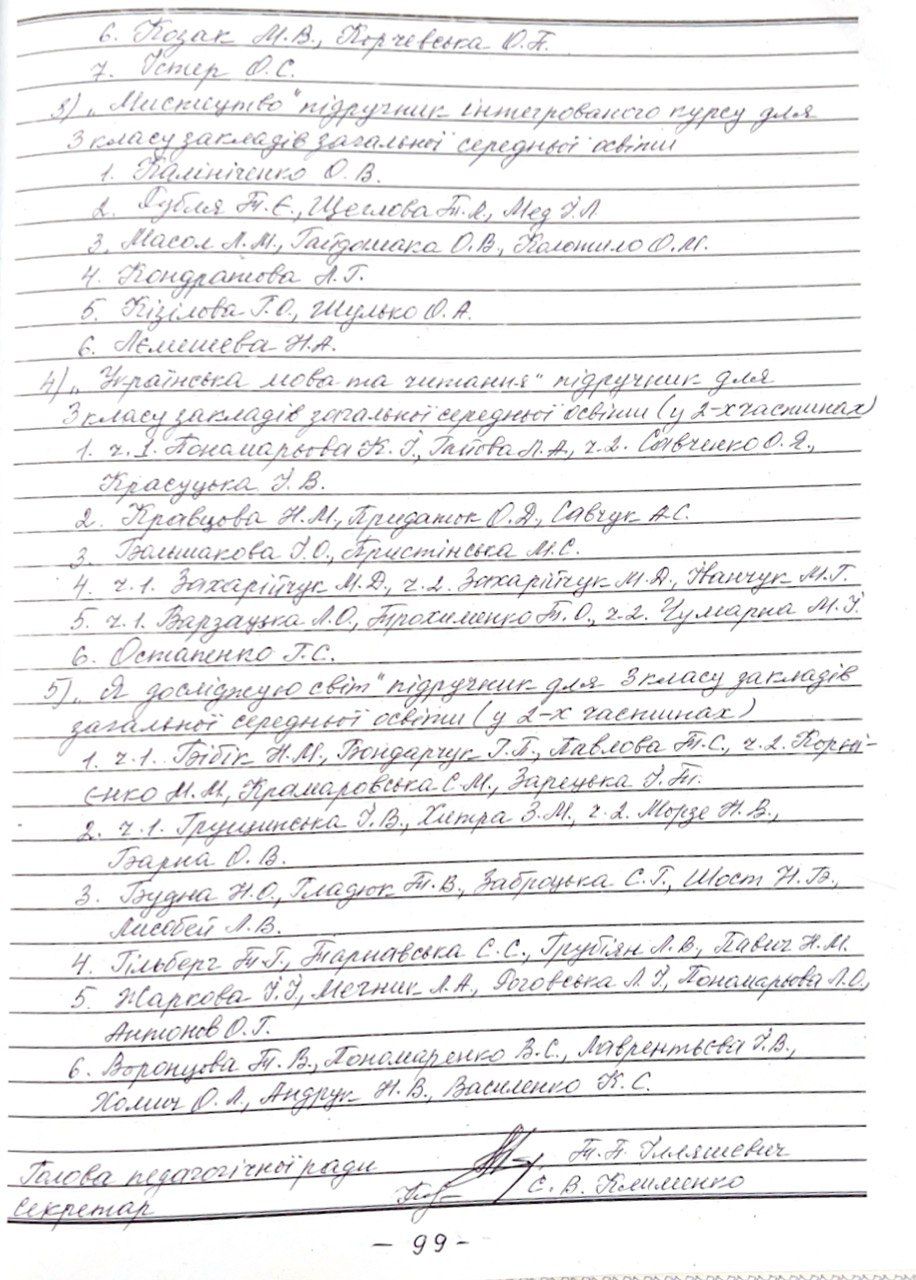 6. Козак М.В., Корчевська О.П.
7. Істер О.С.
3) „Мистецтво" підручник інтегрованого курсу для
3 класу закладів загальної середньої освіти
1. Калініченко О.В.
2. Рубля Т.Є., Щеглова Т.Л., Мед І.Л.
3. Масол Л.М., Гайдамака О.В., Колотило О.М.
4. Кондратова Л.Г.
5. Кізілова Г.О., Шулько О.А.
6. Лємешева Н.А.
4) „Українська мова та читання" підручник для
3 класу закладів загальної середньої освіти (у 2-х частинах)
1. ч.1. Пономарьова К.І., Гайова Л.А., ч.2. Савченко О.Я.,
Красуцька І.В.
2. Кравцова Н.М., Придаток О.Д., Савчук А.С.
3. Большакова І.О., Пристінська М.С.
4. ч.1. Захарійчук М.Д., ч.2. Захарійчук М.Д., Іванчук М.Г.
5. ч.1. Варзацька Л.О., Трохименко Т.О., ч.2. Чумарна М.І.
6. Остапенко Г.С.
5) „Я досліджую світ" підручник для 3 класу закладів
загальної середньої освіти (у 2-х частинах)
1. ч.1. Бібік Н.М., Бондарчук Г.П., Павлова Т.С., ч.2. Корні-
єнко М.М., Крамаровська С.М., Зарецька І.Т.
2. ч.1. Грущинська І.В., Хитра З.М., ч.2. Морзе Н.В.,
Барна О.В.
3. Будна Н.О., Гладюк Т.В., Заброцька С.Г., Шост Н.Б.,
Лисобей Л.В.
4. Гільберг Т.Г., Тарнавська С.С., Грубіян Л.В., Павич Н.М.
5. Жаркова І.І., Мечник Л.А., Роговська Л.І., Пономарьова Л.О.,
Антонов О.Г.
6. Воронцова Т.В., Пономаренко В.С., Лаврентьєва І.В.,
Хомич О.Л., Андрук Н.В., Василенко К.С.
Голова педагогічної ради Т.П. Ілляшевич
Секретар Є.В. Клименко
- 99 -